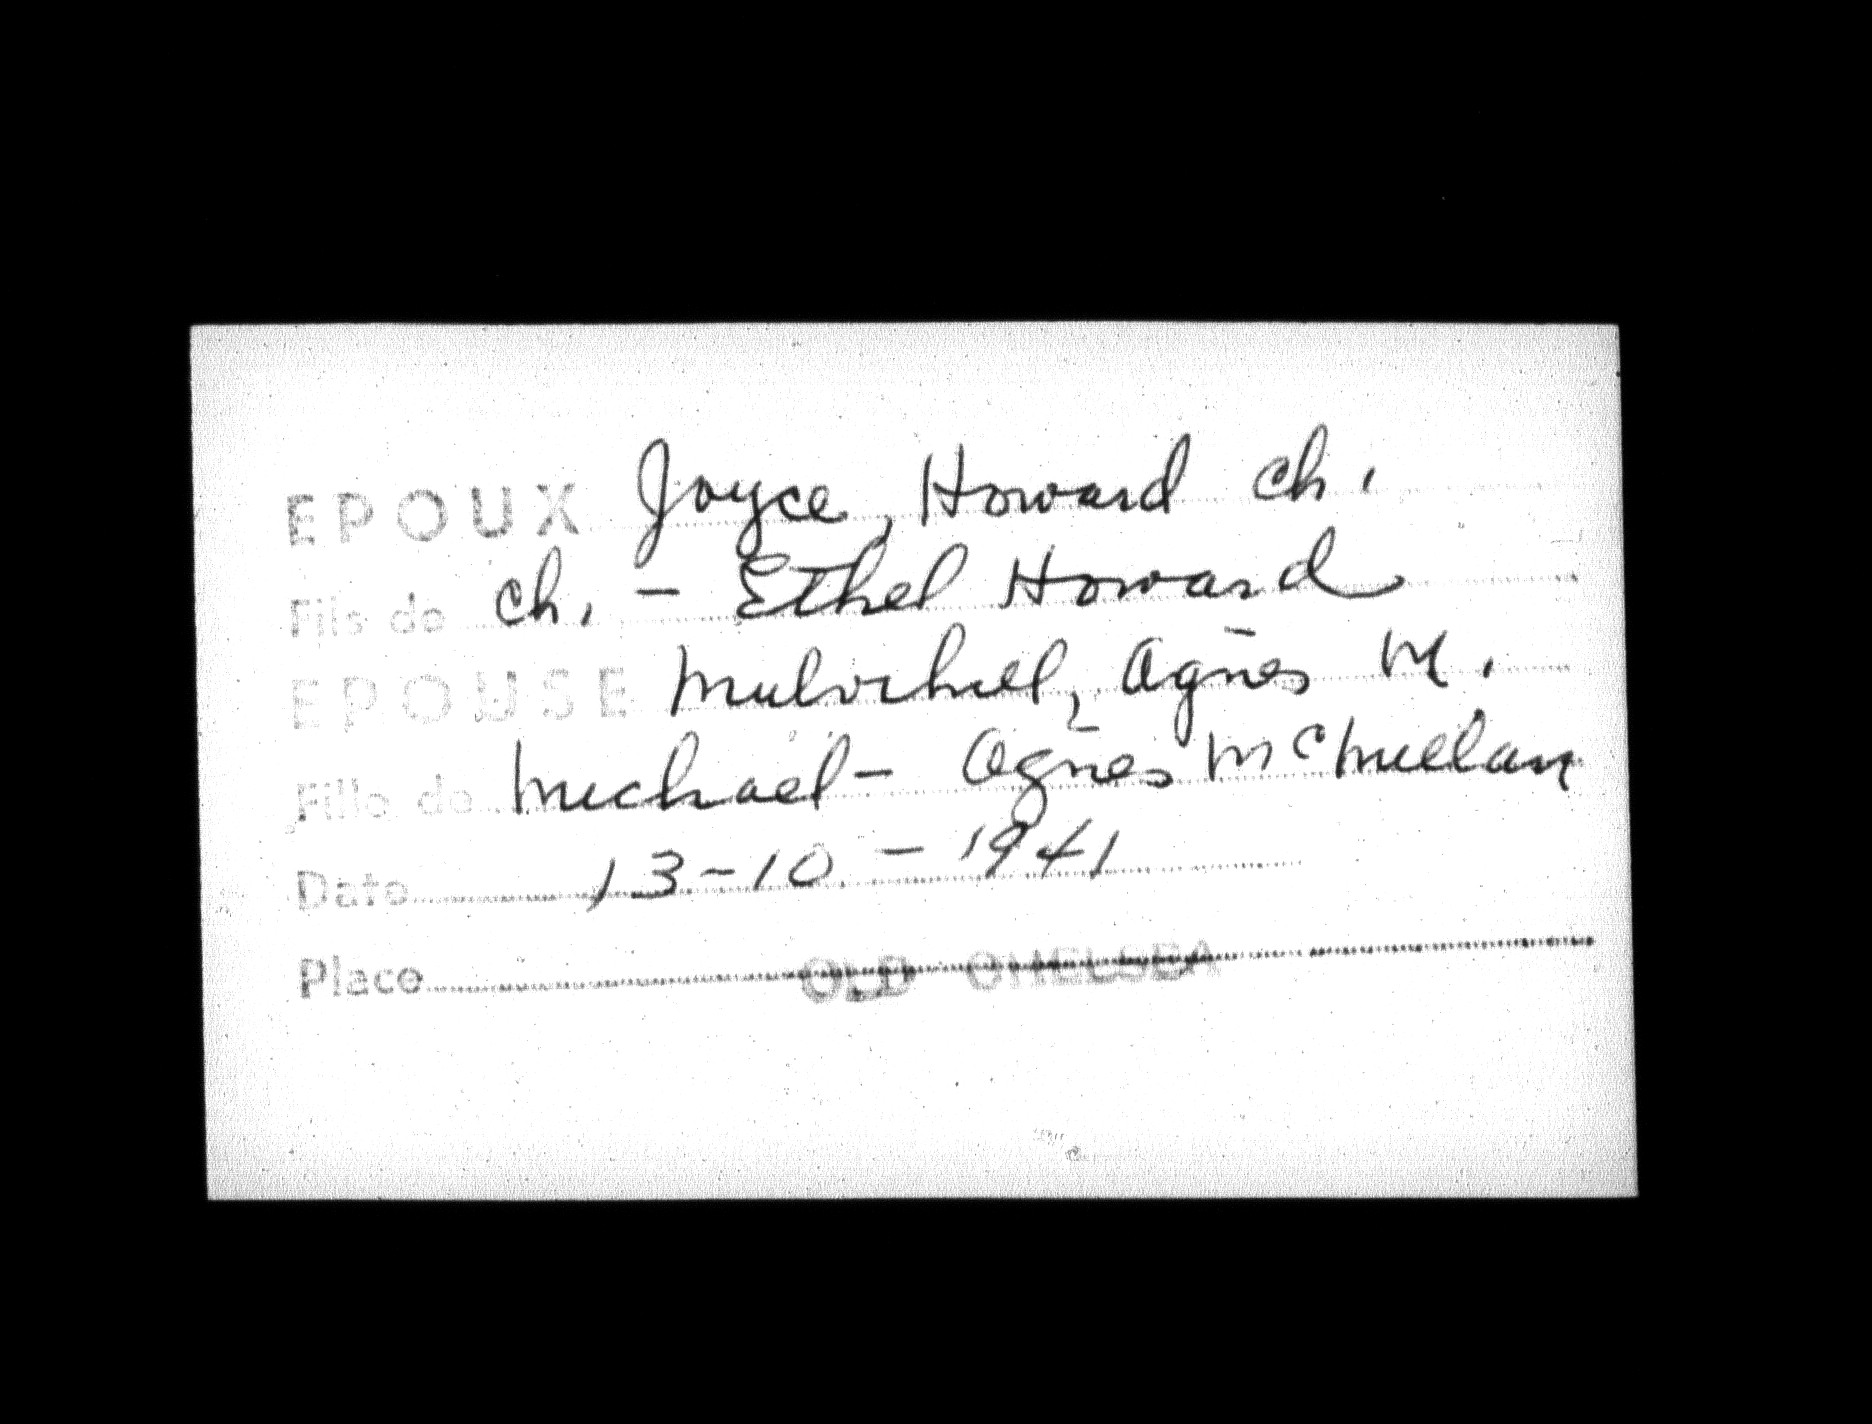 EPOUX Joyce, Howard ch.
Fils de ch. - Ethel Howard
EPOUSE Mulvihill, Agnes M.
Fille de Michael - Agnes McMillan
Date 13-10-1941
Place OLD CHELSEA